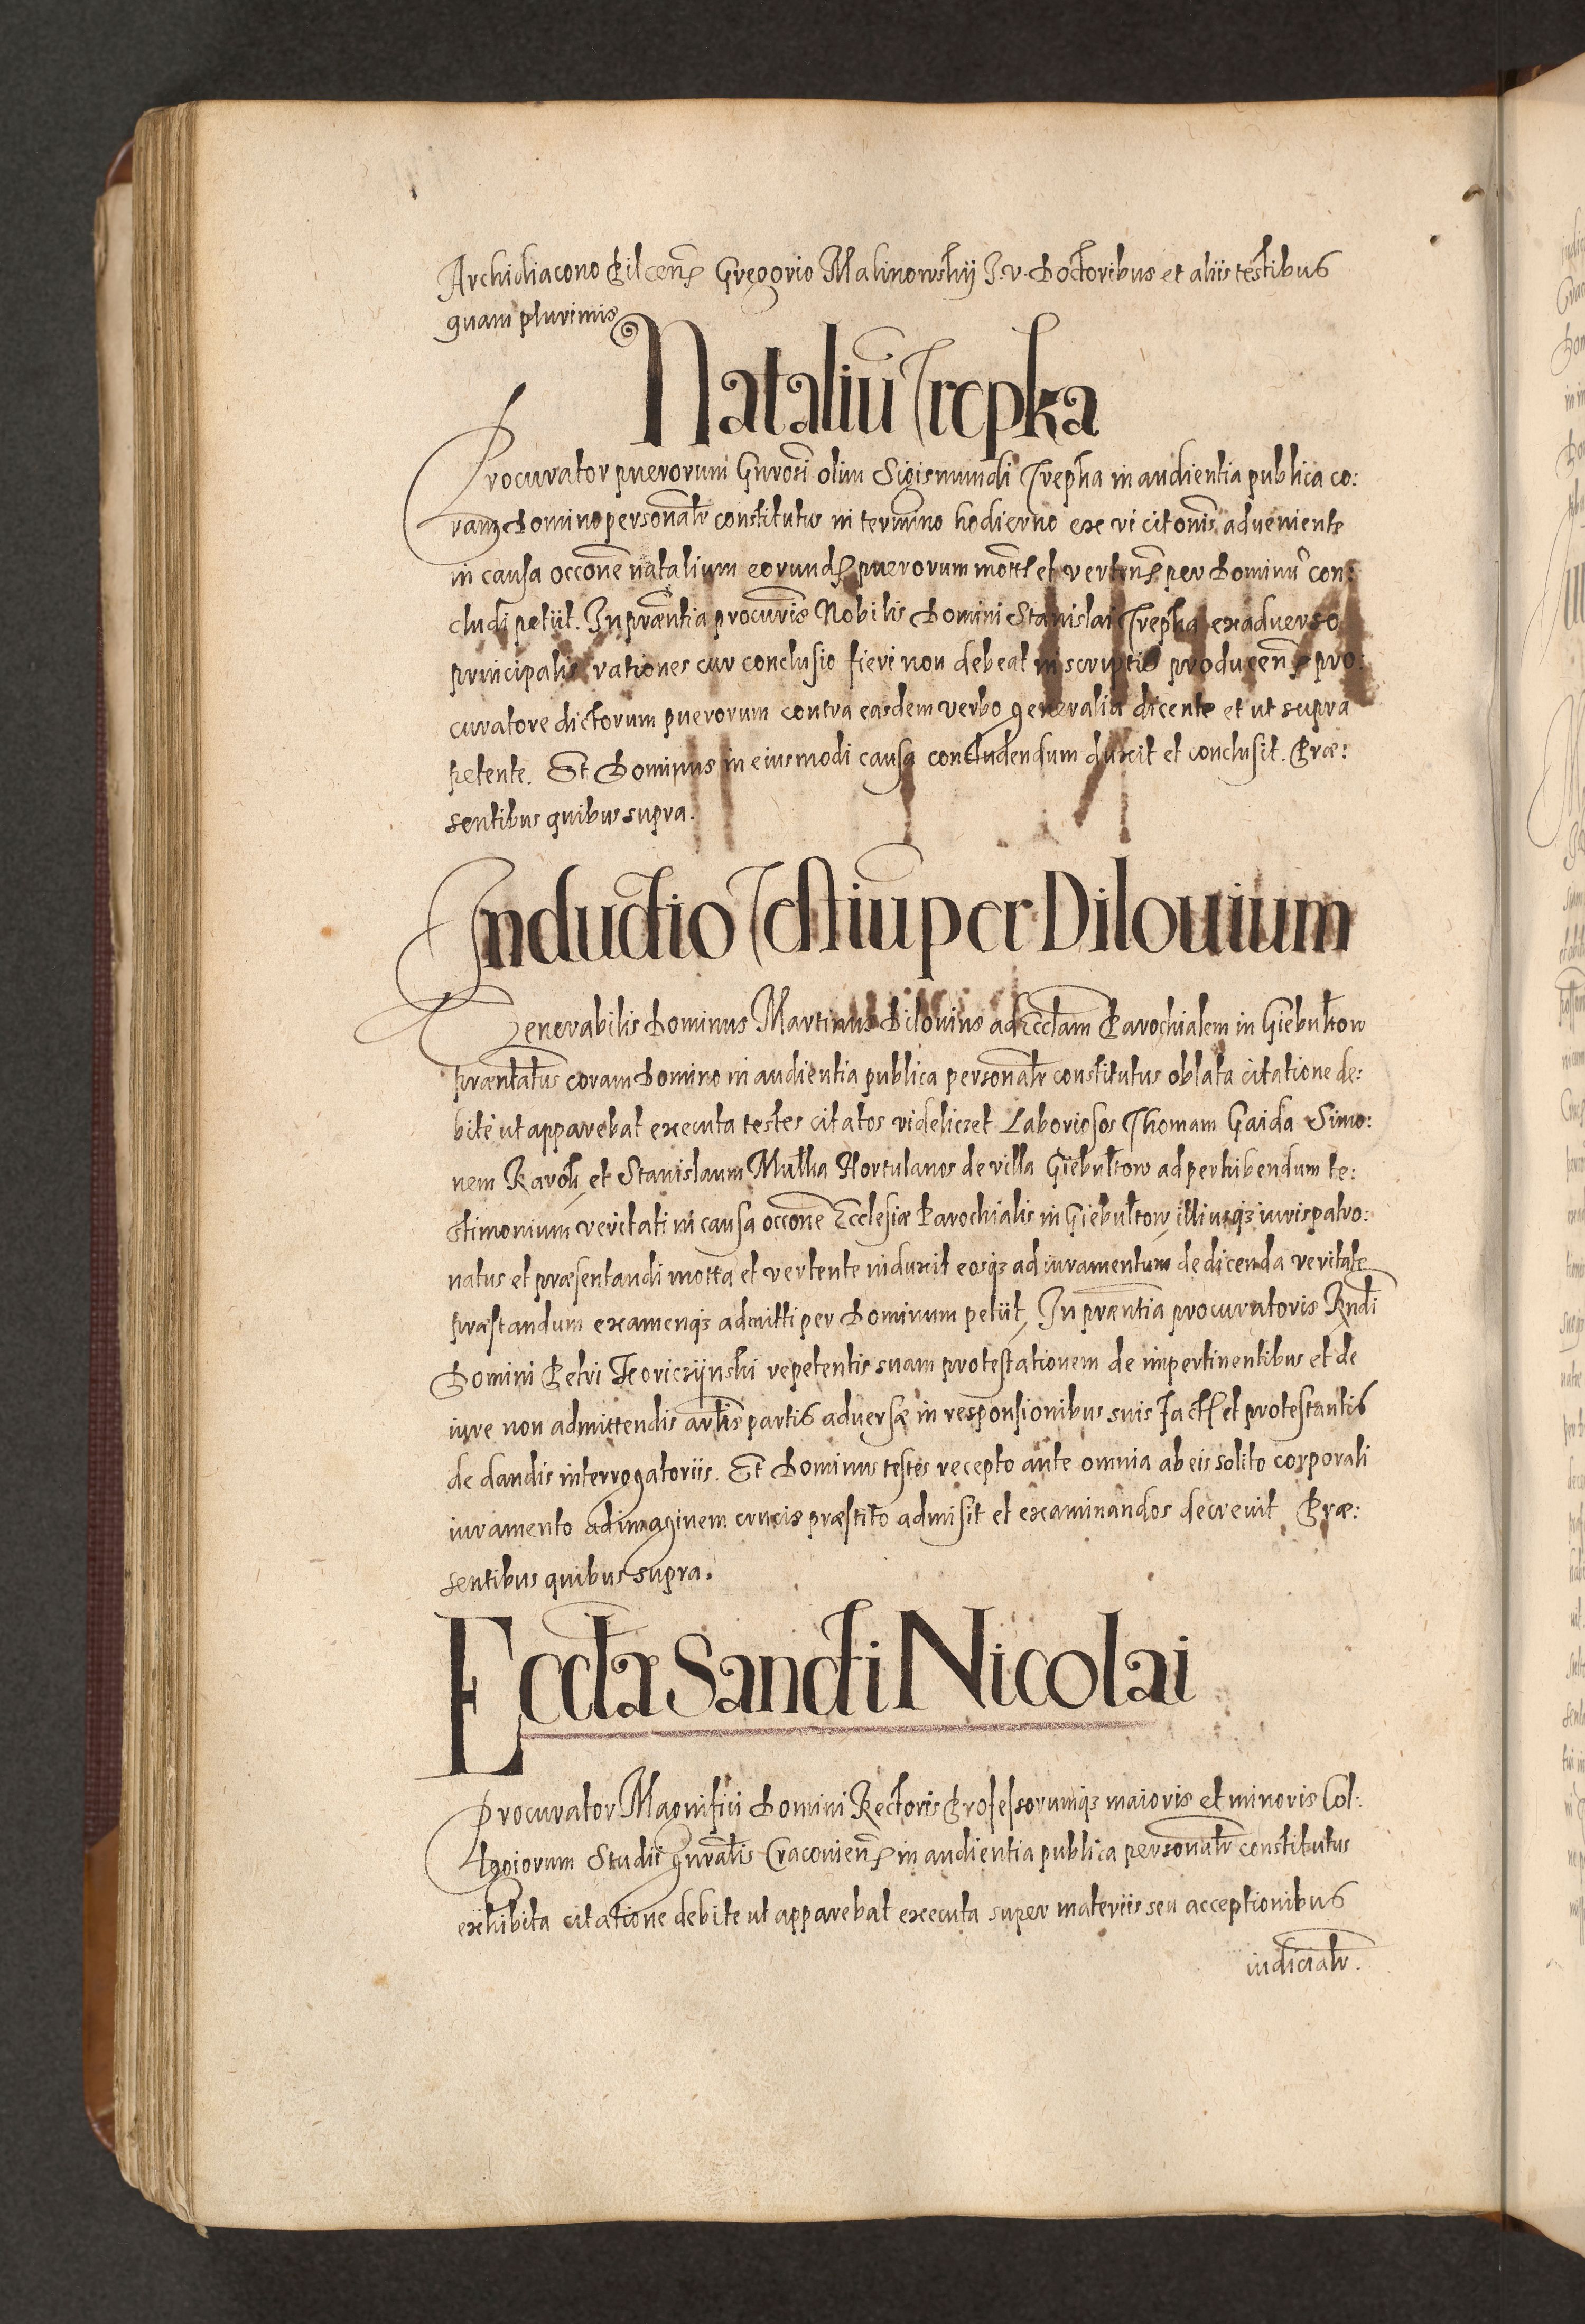 Archidiacono Pilcen̄ Gregorio Malinowskij I. v. Doctoribus et aliis testibus
quam plurimis
Nataliū Trepka
Procurator puerorum Gnrosi olim Sigismundi Trepka in audientia publica co:
ram Domino personal̄r constitutus in termino hodierno ex vi citōnis adveniente
in causa occōne natalium eorund puerorum mott et verten̄ per Dominū con:
cludi petiit. In præn̄tia procuris Nobilis Domini Stanislai Trepka ex adverso
principalis rationes cur conclusio fieri non debeat in scriptis producen̄ pro:
curatore dictorum puerorum contra easdem verbo generalia dicente et ut supra
petente. Et Dominus in eiusmodi causa concludendum duxit et conclusit. Præ:
sentibus quibus supra.
Inductio Testiū per Dilouium
Venerabilis Dominus Martinus Dilouius ad Eccl̄am Parochialem in Giebultow
præntatus coram Domino in audientia publica personal̄r constitutus oblata citatione de:
bite ut apparebat executa testes citatos videliczet Laboriosos Thomam Gaida Simo:
nem Karoli et Stanislaum Mulka Hortulanos de villa Giebultow ad perhibendum te:
stimonium veritati in causa occōne Ecclesiæ Parochialis in Giebultow illiusq3 iurispatro:
natus et præsentandi motta et vertente induxit eosq3 ad iuramentum de dicenda veritate
præstandum examenq3 admitti per Dominum petiit, In præntia procuratoris Rndi
Domini Petri Skoriczijnski repetentis suam protestationem de impertinentibus et de
iure non admittendis artlis partis adversæ in responsionibus suis fact et protestantis
de dandis interrogatoriis. Et Dominus testes recepto ante omnia ab eis solito corporali
iuramento ad imaginem crucis præstito admisit et examinandos decrevit Præ:
sentibus quibus supra.
Eccl̄a Sancti Nicolai
Procurator Magnifici Domini Rectoris Professorumq3 maioris et minoris Col:
legiorum Studii gnralis Cracovien̄ in audientia publica personal̄r constitutus
exhibita citatione debite ut apparebat executa super materiis seu acceptionibus
iudicial̄r.